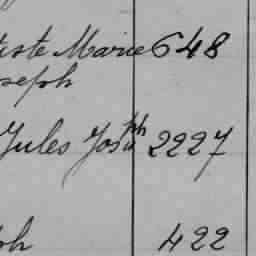 tiste Marie 648
oseph
Jules Josph 2227
ph 422